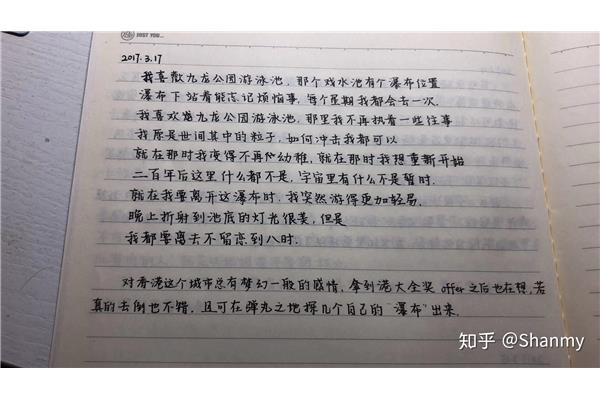 JUST YOU...
2017.3.17
我喜歡九龙公园游泳池，那个戏水池有个瀑布位置
瀑布下站着能忘记烦恼事，每个星期我都会去一次.
我喜欢九龙公园游泳池，那里我不再执着一些往事
我原是世间其中的粒子，如何冲击我都可以
就在那时我变得不再幼稚，就在那时我想重新开始
二百年后这里什么都不是，宇宙里有什么不是暂时.
就在我要离开这瀑布时，我突然游得更加轻易.
晚上折射到池底的灯光很美，但是
我都要离去不留恋到八时.
对香港这个城市总有梦幻一般的感情，拿到港大全奖 offer 之后也在想，若
真的去倒也不错，且可在弹丸之地探几个自己的“瀑布”出来.
知乎 @Shanmy